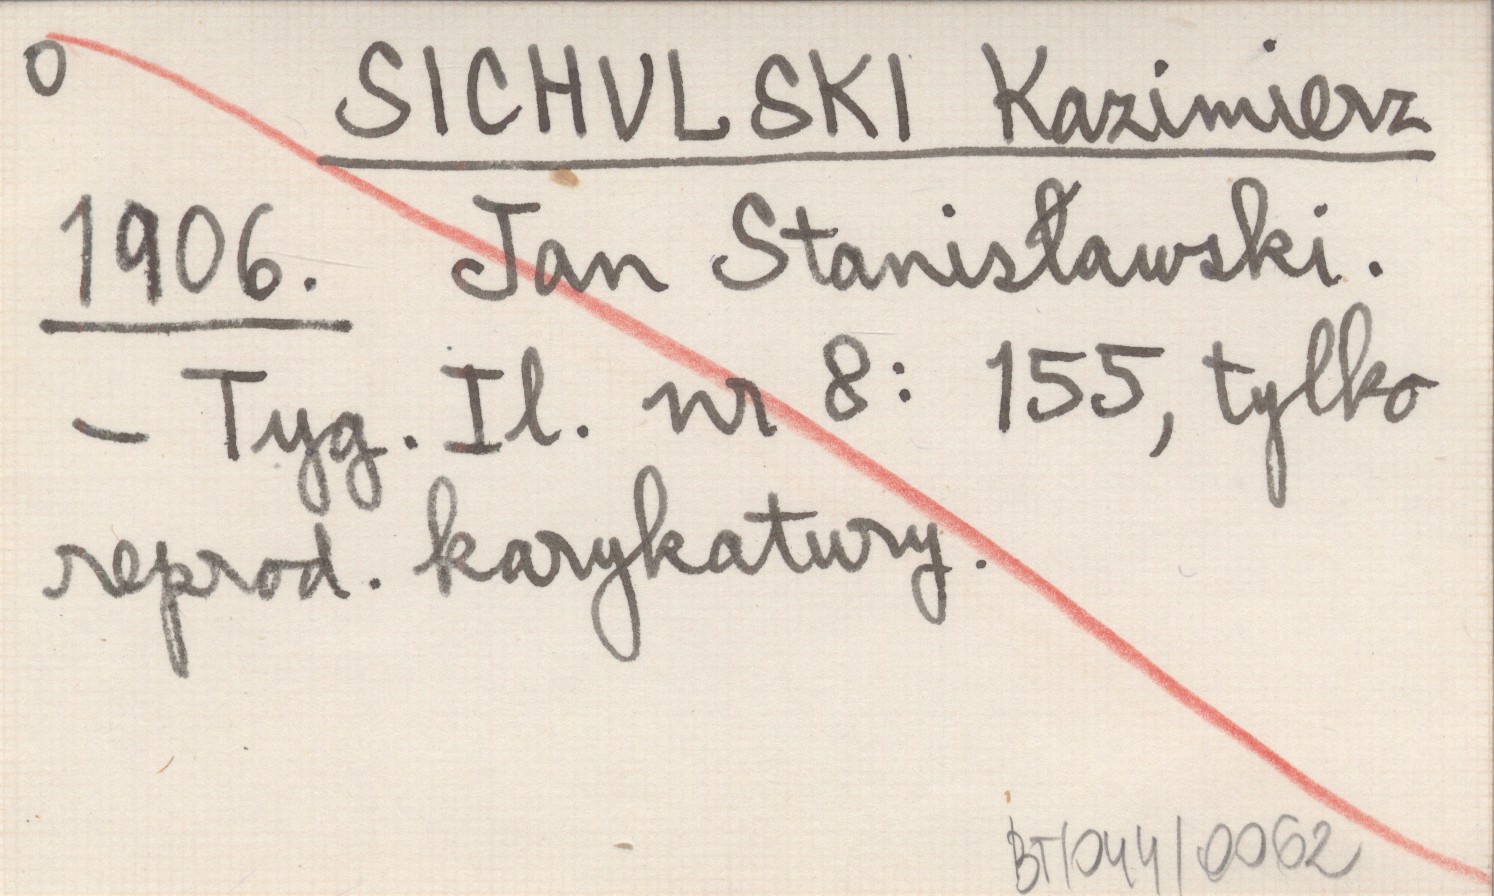 0 SICHULSKI Kazimierz
1906. Jan Stanisławski.
- Tyg. Il. nr 8: 155, tylko
reprod. karykatury.
BT/044/0062